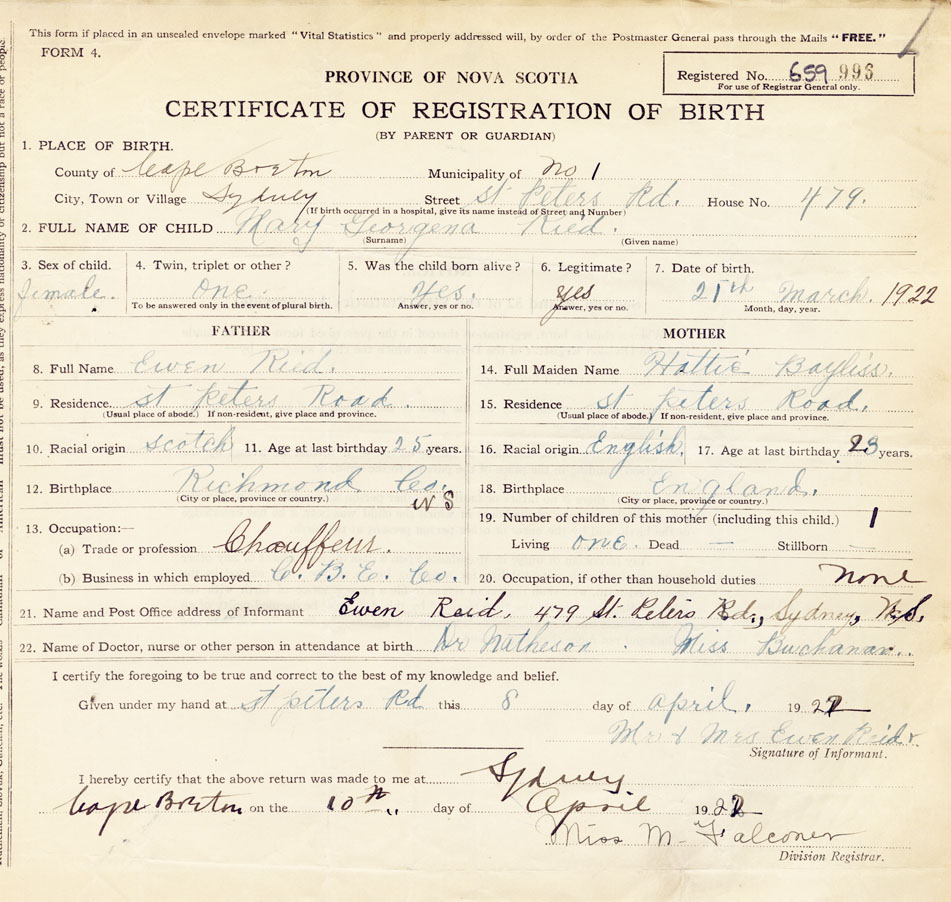 This form if placed in an unsealed envelope marked "Vital Statistics" and properly addressed will, by order of the Postmaster General pass through the Mails "FREE."
FORM 4.
PROVINCE OF NOVA SCOTIA
Registered No. 659 996
For use of Registrar General only.
CERTIFICATE OF REGISTRATION OF BIRTH
(BY PARENT OR GUARDIAN)
1. PLACE OF BIRTH.
County of Cape Breton Municipality of No 1
City, Town or Village Sydney Street St Peters Rd. House No. 479.
(If birth occurred in a hospital, give its name instead of Street and Number)
2. FULL NAME OF CHILD Mary Georgena Ried.
(Surname) (Given name)
3. Sex of child. 4. Twin, triplet or other? 5. Was the child born alive? 6. Legitimate? 7. Date of birth.
female. one. Yes. yes 25th March. 1922
To be answered only in the event of plural birth. Answer, yes or no. Answer, yes or no. Month, day, year.
FATHER MOTHER
8. Full Name Ewen Reid. 14. Full Maiden Name Hattie Bayliss.
9. Residence. St Peters Road. 15. Residence St Peters Road.
(Usual place of abode.) If non-resident, give place and province. (Usual place of abode.) If non-resident, give place and province.
10. Racial origin Scotch 11. Age at last birthday 25 years. 16. Racial origin English. 17. Age at last birthday 23 years.
12. Birthplace Richmond Co. N S 18. Birthplace England.
(City or place, province or country.) (City or place, province or country.)
13. Occupation:— 19. Number of children of this mother (including this child.) 1
(a) Trade or profession Chauffeur. Living one. Dead — Stillborn —
(b) Business in which employed C. B. E. Co. 20. Occupation, if other than household duties None
21. Name and Post Office address of Informant Ewen Reid, 479 St. Peters Rd., Sydney, N.S.
22. Name of Doctor, nurse or other person in attendance at birth Dr Matheson. Miss Buchanan.
I certify the foregoing to be true and correct to the best of my knowledge and belief.
Given under my hand at St peters Rd this 8 day of april. 1922
Mr & Mrs Ewen Reid.
Signature of Informant.
I hereby certify that the above return was made to me at Sydney
Cape Breton on the 10th day of April 1922
Miss M. Falconer
Division Registrar.